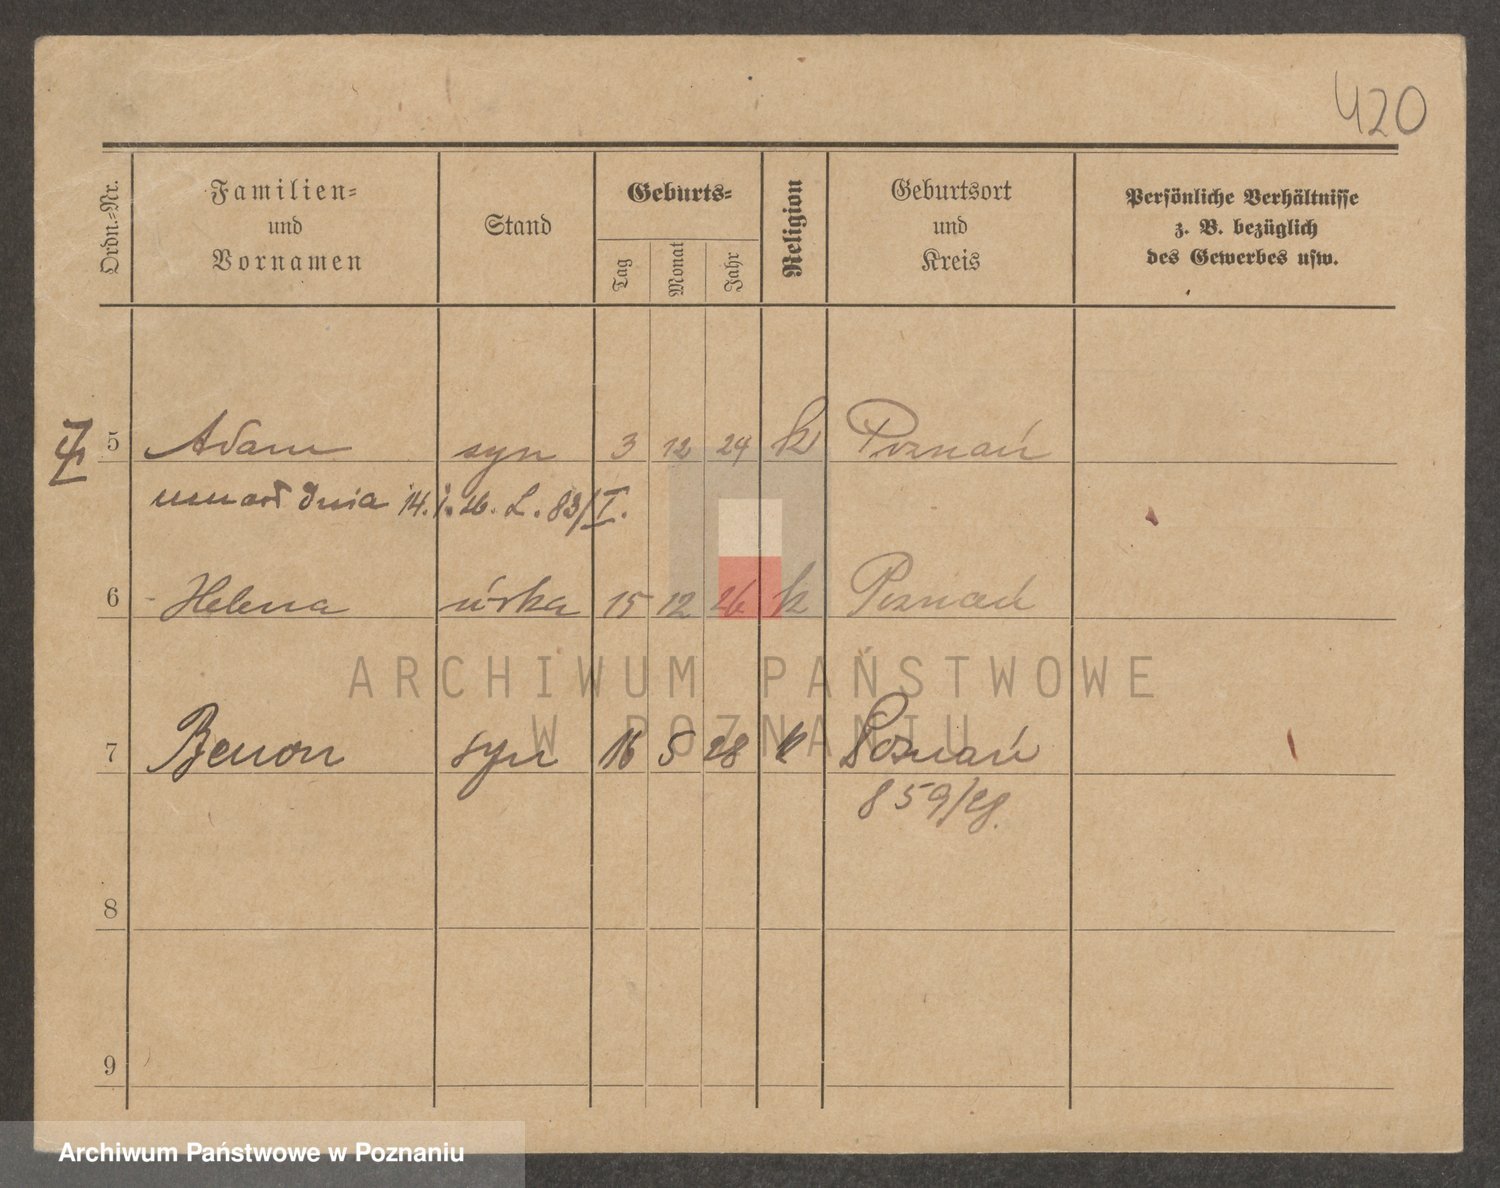 420
Ordn.=Nr.
Familien=
und
Vornamen
Stand
Geburts=
Tag
Monat
Jahr
Religion
Geburtsort
und
Kreis
Persönliche Verhältnisse
z. B. bezüglich
des Gewerbes usw.
5 Adam syn 3 12 24 k Poznań
umarł dnia 14. i. 26. L. 83/I.
6 - Helena córka 15 12 26 k Poznań
7 Benon syn 16 5 28 k Poznań
859/28.
8
9
ARCHIWUM PAŃSTWOWE
W POZNANIU
Archiwum Państwowe w Poznaniu